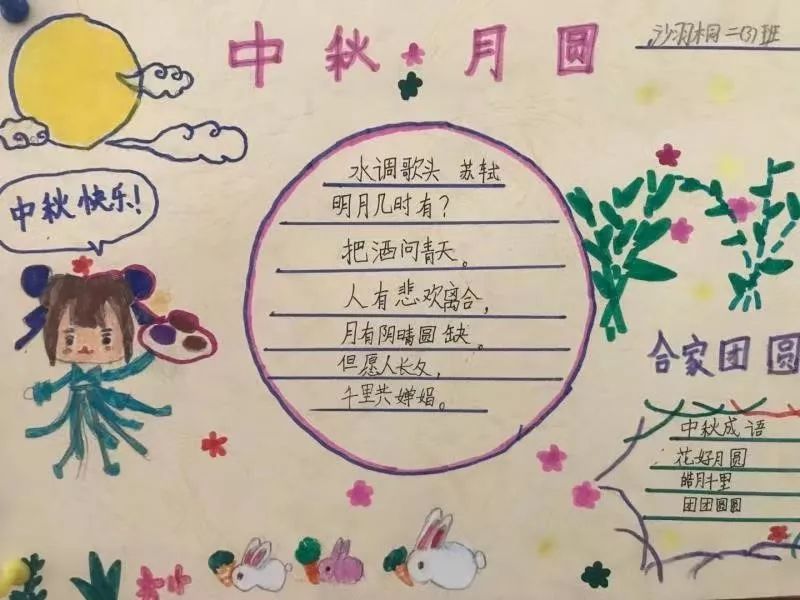 中秋月圆
二(3)班
中秋快乐!
水调歌头 苏轼
明月几时有?
把洒问青天。
人有悲欢离合,
月有阴晴圆缺。
但愿人长久,
千里共婵娟。
合家团圆
中秋成语
花好月圆
皓月千里
团团圆圆